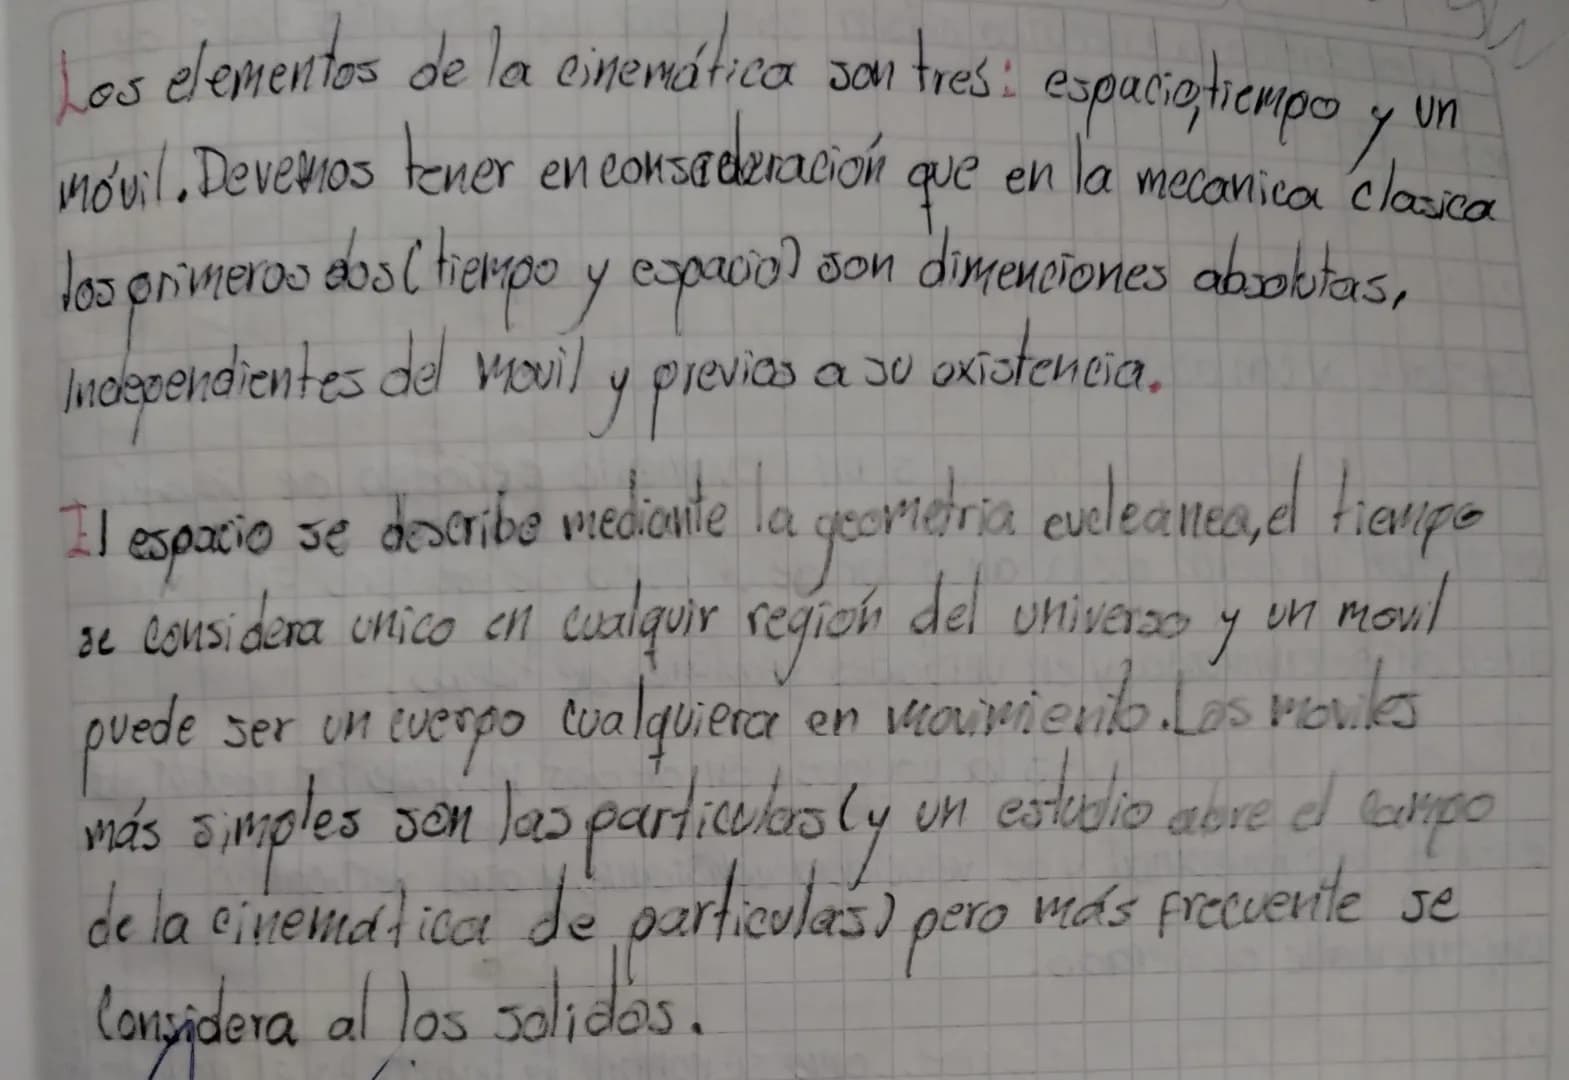 Los elementos de la cinemática son tres: espacio, tiempo y un
móvil. Devemos tener en consideración que en la mecanica clasica
los primeros dos (tiempo y espacio) son dimenciones absolutas,
Independientes del movil y previas a su existencia.
El espacio se describe mediante la geometria eucleanea, el tiempo
se considera unico en cualquir región del universo y un movil
puede ser un cuerpo cualquiera en movimiento. Los moviles
más simples son las particulas (y un estudio abre el campo
de la cinemática de particulas) pero más frecuente se
Considera al los solidos.